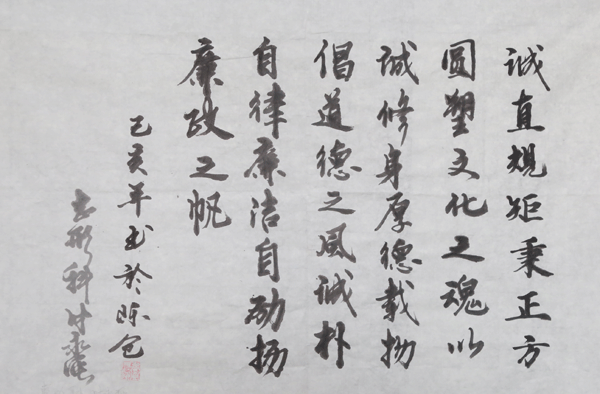 诚直规矩秉正方
圆塑文化之魂以
诚修身厚德载物
倡道德之风诚朴
自律廉洁自励扬
廉政之帆
己亥年书於陈仓